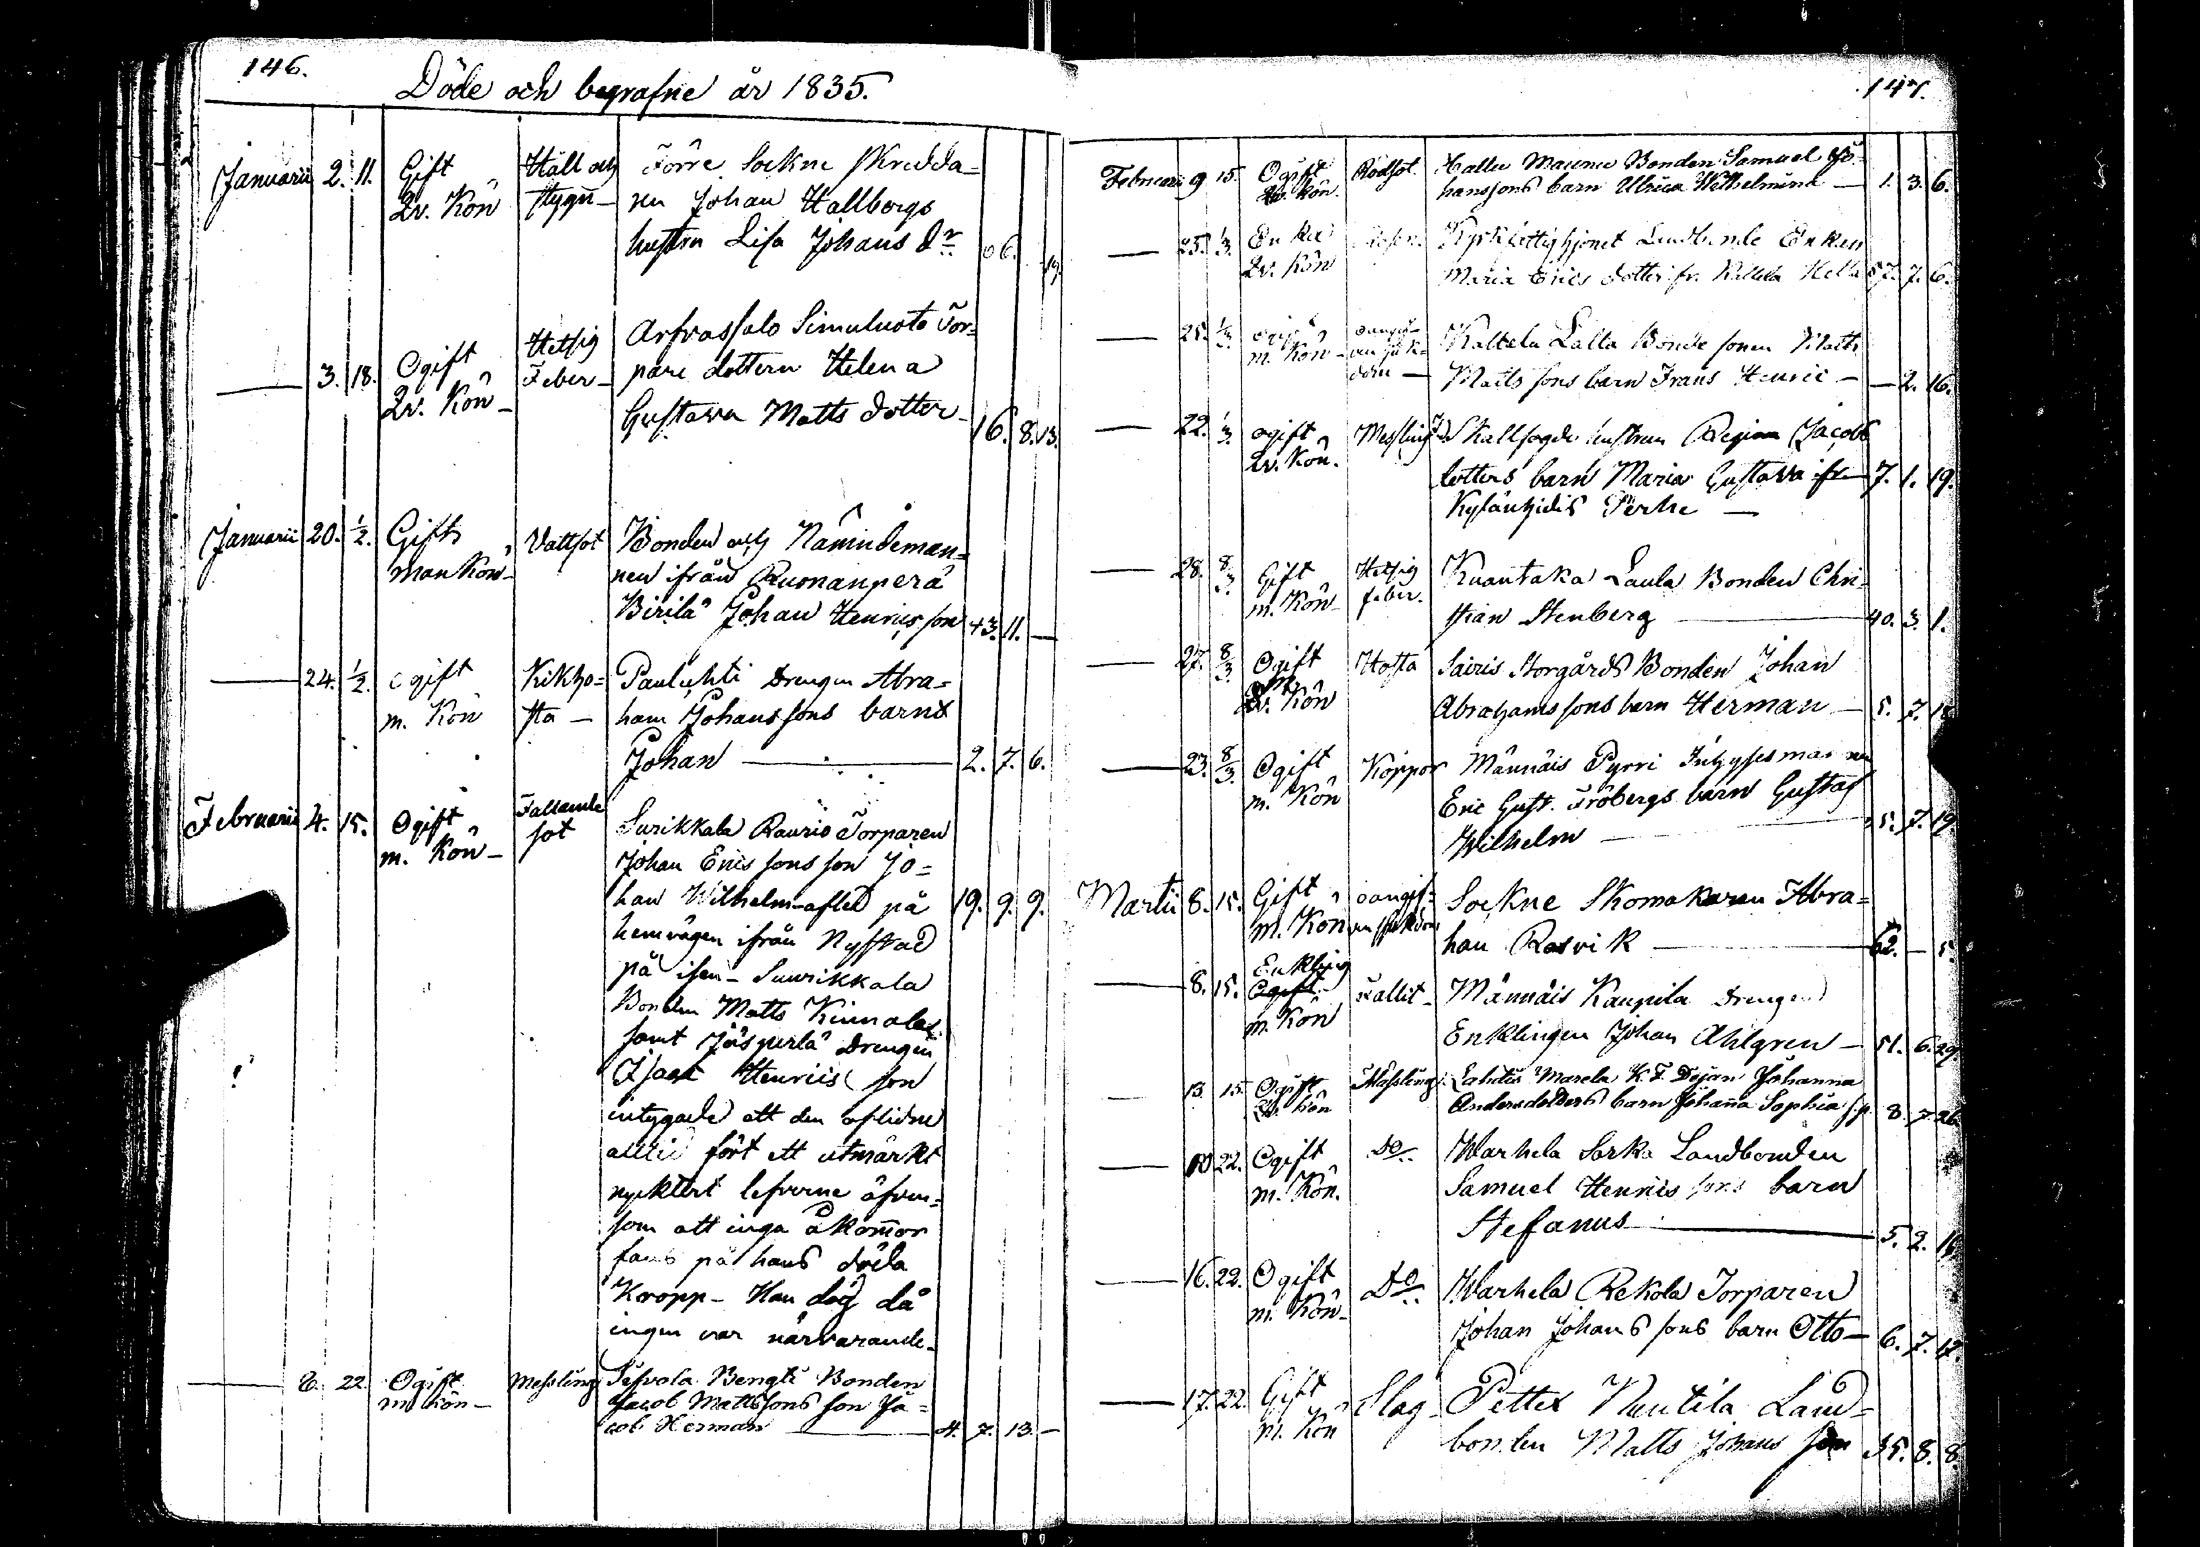 146.
Döde och begrafne år 1835.
Januarii 2. 11. Gift Håll och Förre Sockne skredda=
Qv. Kön stygn- ren Johan Hallbergs
hustru Lisa Johans dr 66. 19.
— 3. 18. Ogift Hetsig Arfvassalo Simuluoto Tor=
Qv. Kön- Feber- pare dottern Helena
Gustava Matts dotter- 16. 8. 13.
Januarii 20. 1/2. Gift Vattsot Bonden och Nämndeman=
Man Kön- nen ifrån Ruonanperä
Birilä Johan Henrics son 43. 11. —
— 24. 1/2. Ogift Kikho= Drengen Abra=
m. Kön sta — ham Johans sons barn
Johan — 2. 7. 6.
Februarii 4. 15. Ogift Fallande Surikkala Raurio Torparen
m. Kön- sot Johan Erics sons son Jo=
han Wilhelm-afled på 19. 9. 9.
hemvägen ifrån Nystad
på isen- Suurikkala
Bonden Matts
samt Jäsperlä Drengen
Isaac Henrics son
intygade att den aflidne
alltid fört ett utmärkt
nycktert lefverne äfven=
som att inga åkommor
fans på hans döda
Kropp- Han dog då
ingen var närvarande-
— 8. 22. Ogift Messling Bengti Bonden
m kön- Jacob Matts sons son Ja=
cob Herman — 4. 7. 13. —
147.
Februari 9 15. Ogift Rödsot. Kallu Maunu Bonden Samuel Jo=
Qv. kön. hanssons barn Ulrica Wilhelmina — 1. 3. 6.
— 25. 1/3. Enka Enkan
Qv. Kön Maria Erics dotter fr. Kaltela 57. 7. 6.
— 25. 1/3. ogift oangif= Kaltela Lalla Bonde sonen Matts
m. Kön- Matts sons barn Frans Henric — — 2. 16.
— 22. 1/3. ogift Messling hustrun Regina Jacobs
Qv. Kön. dotters barn Maria Gustava ifr 7. 1. 19.
Perhe —
— 28. 8/3. Gift Hetsig Kuantaka Laula Bonden Chri=
m. Kön- feber. stian Stenberg — 40. 3. 1.
— 27. 8/3. Ogift Hosta Sairis Storgårds Bonden Johan
m. Kön Abrahams sons barn Herman — 5. 7. 18
— 23. 8/3. Ogift Koppor Männäis Pyrri Inhyses mannen
m. Kön Eric Gust. Fröbergs barn Gustaf
Wilhelm — 5. 7. 19
Martii 8. 15. Gift oangif= Sockne Skomakaren Abra=
m. Kön ham Rasvik — 62. — 5.
Enkling
— 8. 15. Ogift Fallit- Männäis Kaupila Drengen
m. Kön Enklingen Johan Ahlgren — 51. 6. 29.
— 13. 15. Ogift Messling. Lahdis Marela K. F. Dejan Johanna
Qv. kön Andersdotters barn Johanna Sophia 8. 7. 26.
— 10 22. Ogift Do Warhela Sorka Landbonden
m. Kön. Samuel Henrics sons barn
Stefanus — 5. 2. 19
— 16. 22. Ogift Do Warhela Rekola Torparen
m. Kön- Johan Johans sons barn Otto — 6. 7. 12.
— 17. 22. Gift Slag- Nuutila Land=
m. Kön bonden Matts Johans son 35. 8. 8.